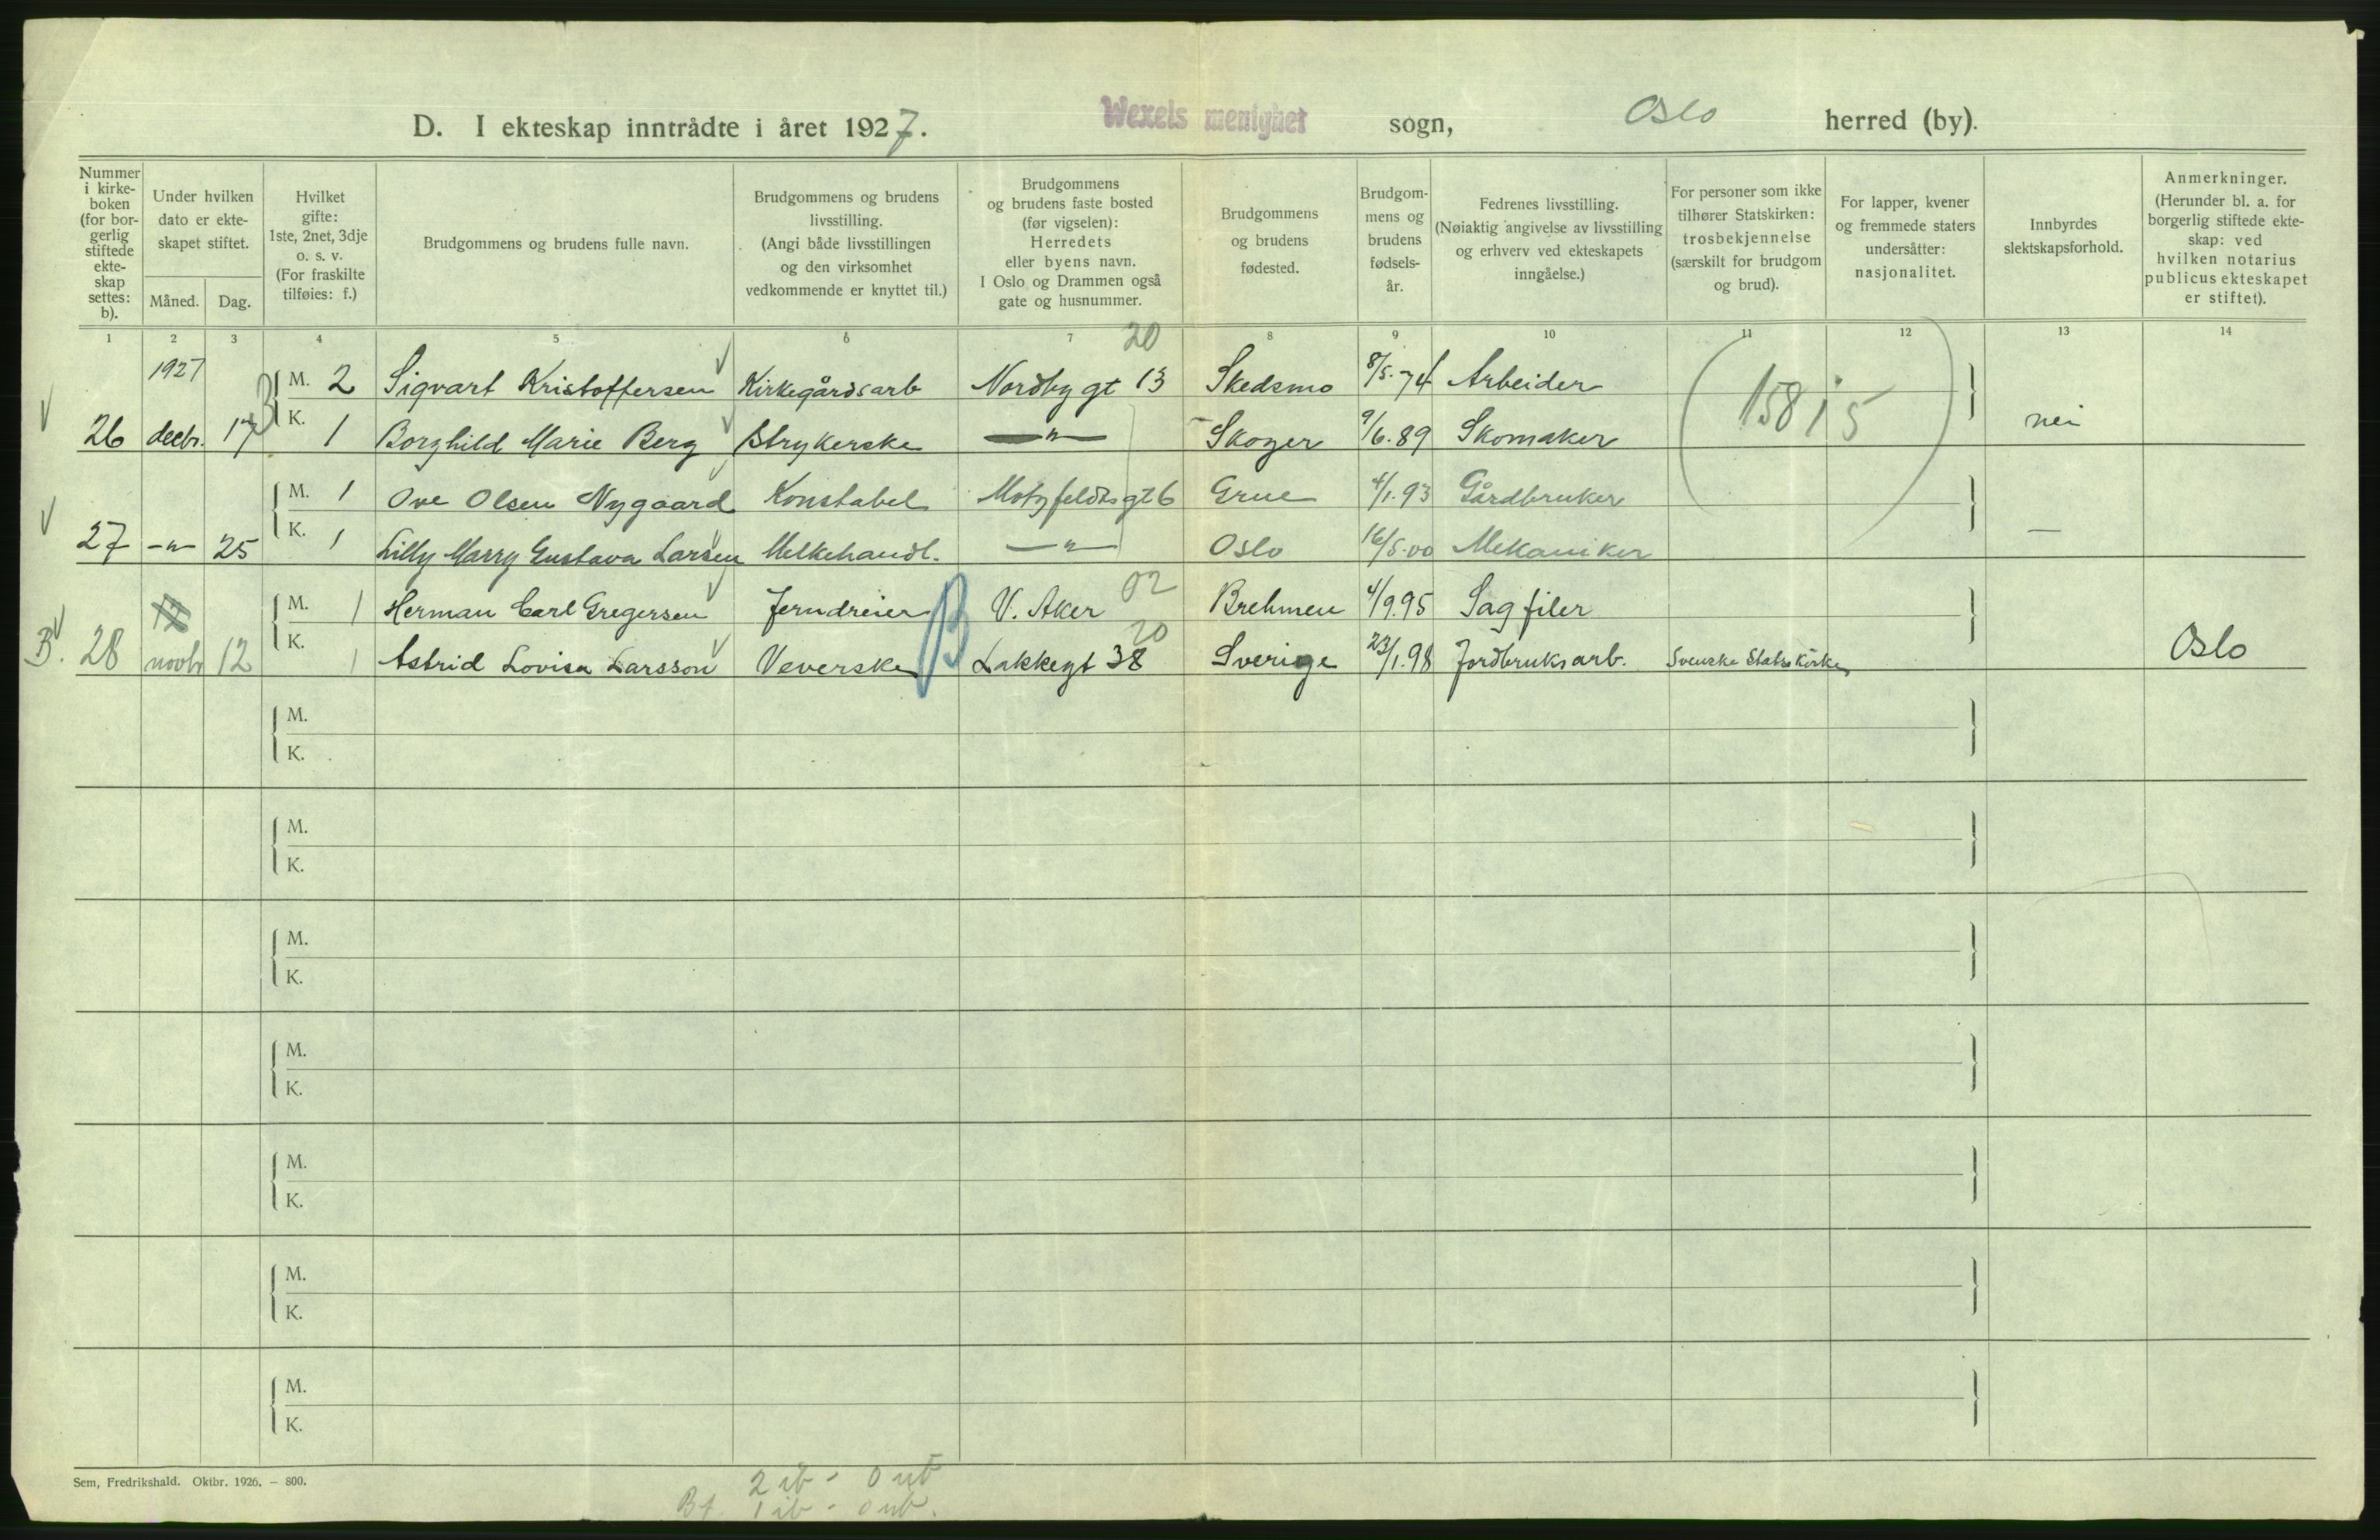 D. I ekteskap inntrådte i året 1927. Wexels menighet sogn, Oslo herred (by).
Nummer i kirke- boken (for bor- gerlig stiftede ekte- skap settes: b).
Under hvilken dato er ekte- skapet stiftet.
Måned. Dag.
Hvilket gifte: 1ste, 2net, 3dje o. s. v. (For fraskilte tilføies: f.)
Brudgommens og brudens fulle navn.
Brudgommens og brudens livsstilling. (Angi både livsstillingen og den virksomhet vedkommende er knyttet til.)
Brudgommens og brudens faste bosted (før vigselen): Herredets eller byens navn. I Oslo og Drammen også gate og husnummer.
Brudgommens og brudens fødested.
Brudgom- mens og brudens fødsels- år.
Fedrenes livsstilling. (Nøiaktig angivelse av livsstilling og erhverv ved ekteskapets inngåelse.)
For personer som ikke tilhører Statskirken: trosbekjennelse (særskilt for brudgom og brud).
For lapper, kvener og fremmede staters undersåtter: nasjonalitet.
Innbyrdes slektskapsforhold.
Anmerkninger. (Herunder bl. a. for borgerlig stiftede ekte- skap: ved hvilken notarius publicus ekteskapet er stiftet).
1 2 3 4 5 6 7 8 9 10 11 12 13 14
20
1927 M. 2 Sigvart Kristoffersen Kirkegårdsarb Nordbygt 13 Skedsmo 8/5.74 Arbeider
26 decbr. 17 K. 1 Borghild Marie Berg Strykerske —"— Skoger 9/6.89 Skomaker nei
(158 i 5)
M. 1 Ove Olsen Nygaard Konstabel Motzfeldtsgt 6 Grue 4/1.93 Gårdbruker
27 -"- 25 K. 1 Lilly Marry Gustava Larsen Melkehandl. —"— Oslo 16/5.00 Mekaniker —
M. 1 Herman Carl Gregersen Jerndreier V. Aker 02 Brehmen 4/9.95 Sagfiler
B. 28 novbr 12 K. 1 Astrid Lovisa Larsson Veverske B Lakkegt 38 20 Sverige 23/1.98 Jordbruksarb. Svenske Statskirke Oslo
M.
K.
M.
K.
M.
K.
M.
K.
M.
K.
M.
K.
M.
K.
Sem, Fredrikshald. Oktbr. 1926. — 800.
2 ib - 0 ub
Bf. 1 ib - 0 ub.